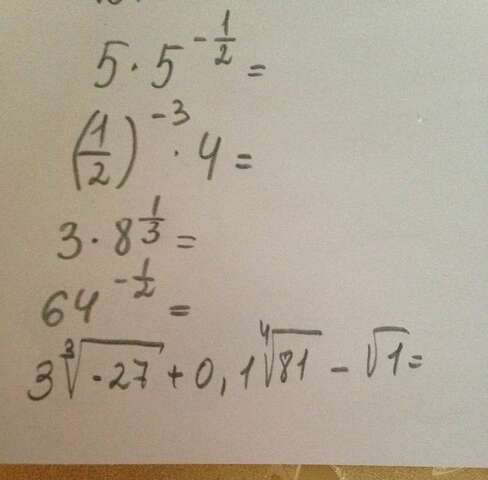 5 · 5^{-\frac{1}{2}} =
(\frac{1}{2})^{-3} · 4 =
3 · 8^{\frac{1}{3}} =
64^{-\frac{1}{2}} =
3\sqrt[3]{-27} + 0,1\sqrt[4]{81} - \sqrt{1} =